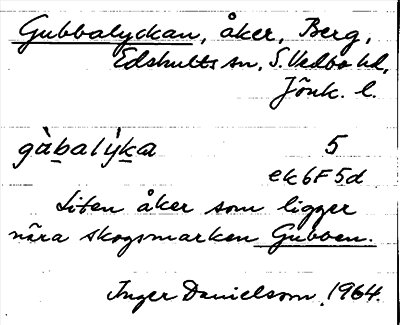 Gubbalyckan, åker, Berg,
Edshults sn, S. Vedbo hd,
Jönk. l.
gàbalỳka 5
ek6F5d
Liten åker som ligger
nära skogsmarken Gubben.
Inger Danielsson 1964.